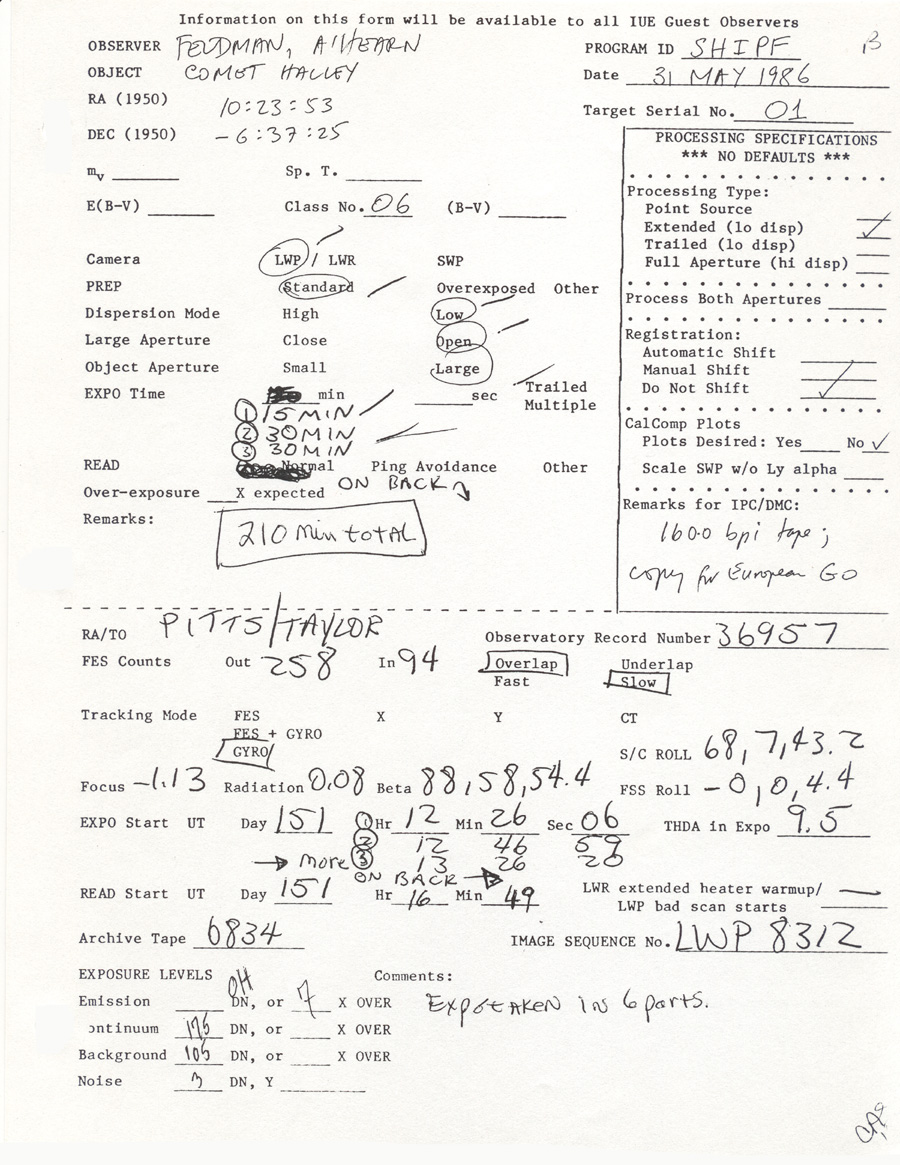 Information on this form will be available to all IUE Guest Observers
OBSERVER FELDMAN, A'HEARN
PROGRAM ID SHIPF
OBJECT COMET HALLEY
Date 31 MAY 1986
RA (1950) 10:23:53
Target Serial No. 01
DEC (1950) -6:37:25
mv Sp. T.
E(B-V) Class No. 06 (B-V)
PROCESSING SPECIFICATIONS
*** NO DEFAULTS ***
Processing Type:
Point Source
Extended (lo disp) ✓
Trailed (lo disp)
Full Aperture (hi disp)
Process Both Apertures
Registration:
Automatic Shift
Manual Shift
Do Not Shift ✓
CalComp Plots
Plots Desired: Yes No ✓
Scale SWP w/o Ly alpha
Remarks for IPC/DMC:
1600 bpi tape;
copy for European GO
Camera LWP / LWR SWP
PREP Standard Overexposed Other
Dispersion Mode High Low
Large Aperture Close Open
Object Aperture Small Large
EXPO Time min sec Trailed
Multiple
① 15 MIN
② 30 MIN
③ 30 MIN
READ Normal Ping Avoidance Other
ON BACK
Over-exposure X expected
Remarks:
210 Min total
RA/TO PITTS/TAYLOR
Observatory Record Number 36957
FES Counts Out 258 In 94 Overlap Underlap
Fast Slow
Tracking Mode FES X Y CT
FES + GYRO
GYRO
S/C ROLL 68,7,43.2
Focus -1.13 Radiation 0.08 Beta 88,58,54.4 FSS Roll -0,0,4.4
EXPO Start UT Day 151 ① Hr 12 Min 26 Sec 06 THDA in Expo 9.5
② 12 46 59
→ more ③ 13 26 20
ON BACK →
READ Start UT Day 151 Hr 16 Min 49
LWR extended heater warmup/
LWP bad scan starts
Archive Tape 6834
IMAGE SEQUENCE No. LWP 8312
EXPOSURE LEVELS Comments:
OH
Emission DN, or 7 X OVER EXPO TAKEN in 6 parts.
ontinuum 175 DN, or X OVER
Background 105 DN, or X OVER
Noise 3 DN, Y